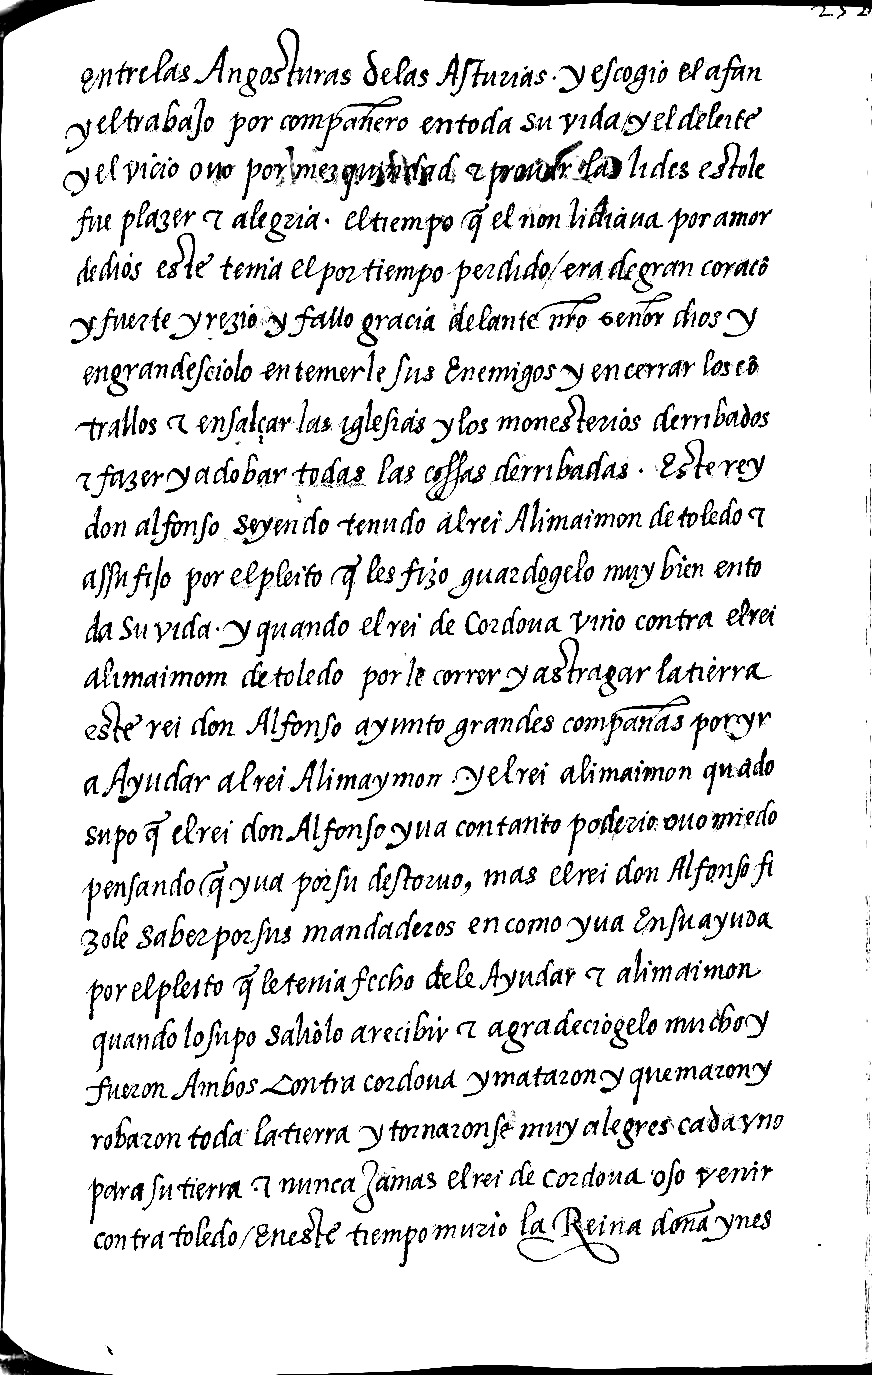 entre las Angosturas de las Asturias. y escogio el afan
y el trabajo por compañero en toda su vida, y el deleite
y el vicio ovo por mezquindad τ provar las lides estole
fue plazer τ alegria. el tiempo q̃ el non lidiava por amor
de dios este tenia el por tiempo perdido / era de gran coraçõ
y fuerte y rezio y fallo gracia delante nr̃o señor dios y
engrandesciolo en temerle sus Enemigos y en cerrar los cõ
trallos τ ensalçar las iglesias y los monesterios derribados
τ fazer y adobar todas las cossas derribadas. Este rey
don alfonso seyendo tenudo al rei Alimaimon de toledo τ
assu fijo por el pleito q̃ les fizo guardogelo muy bien en to
da su vida. y quando el rei de Cordova vino contra el rei
alimaimom de toledo por le correr y astragar la tierra
este rei don Alfonso ayunto grandes compañas por yr
a Ayudar al rei Alimaymon y el rei alimaimon quãdo
supo q̃ el rei don Alfonso yva con tanto poderio ovo miedo
pensando q̃ yva por su destorvo, mas el rei don Alfonso fi
zole saber por sus mandaderos en como yva En su ayuda
por el pleito q̃ le tenia fecho de le Ayudar τ alimaimon
quando lo supo saliolo a recibir τ agradeciogelo mucho y
fueron Ambos Contra cordova y mataron y quemaron y
robaron toda la tierra y tornaronse muy alegres cada vno
para su tierra τ nunca Jamas el rei de cordova oso venir
contra toledo / En este tiempo murio la Reina doña ynes